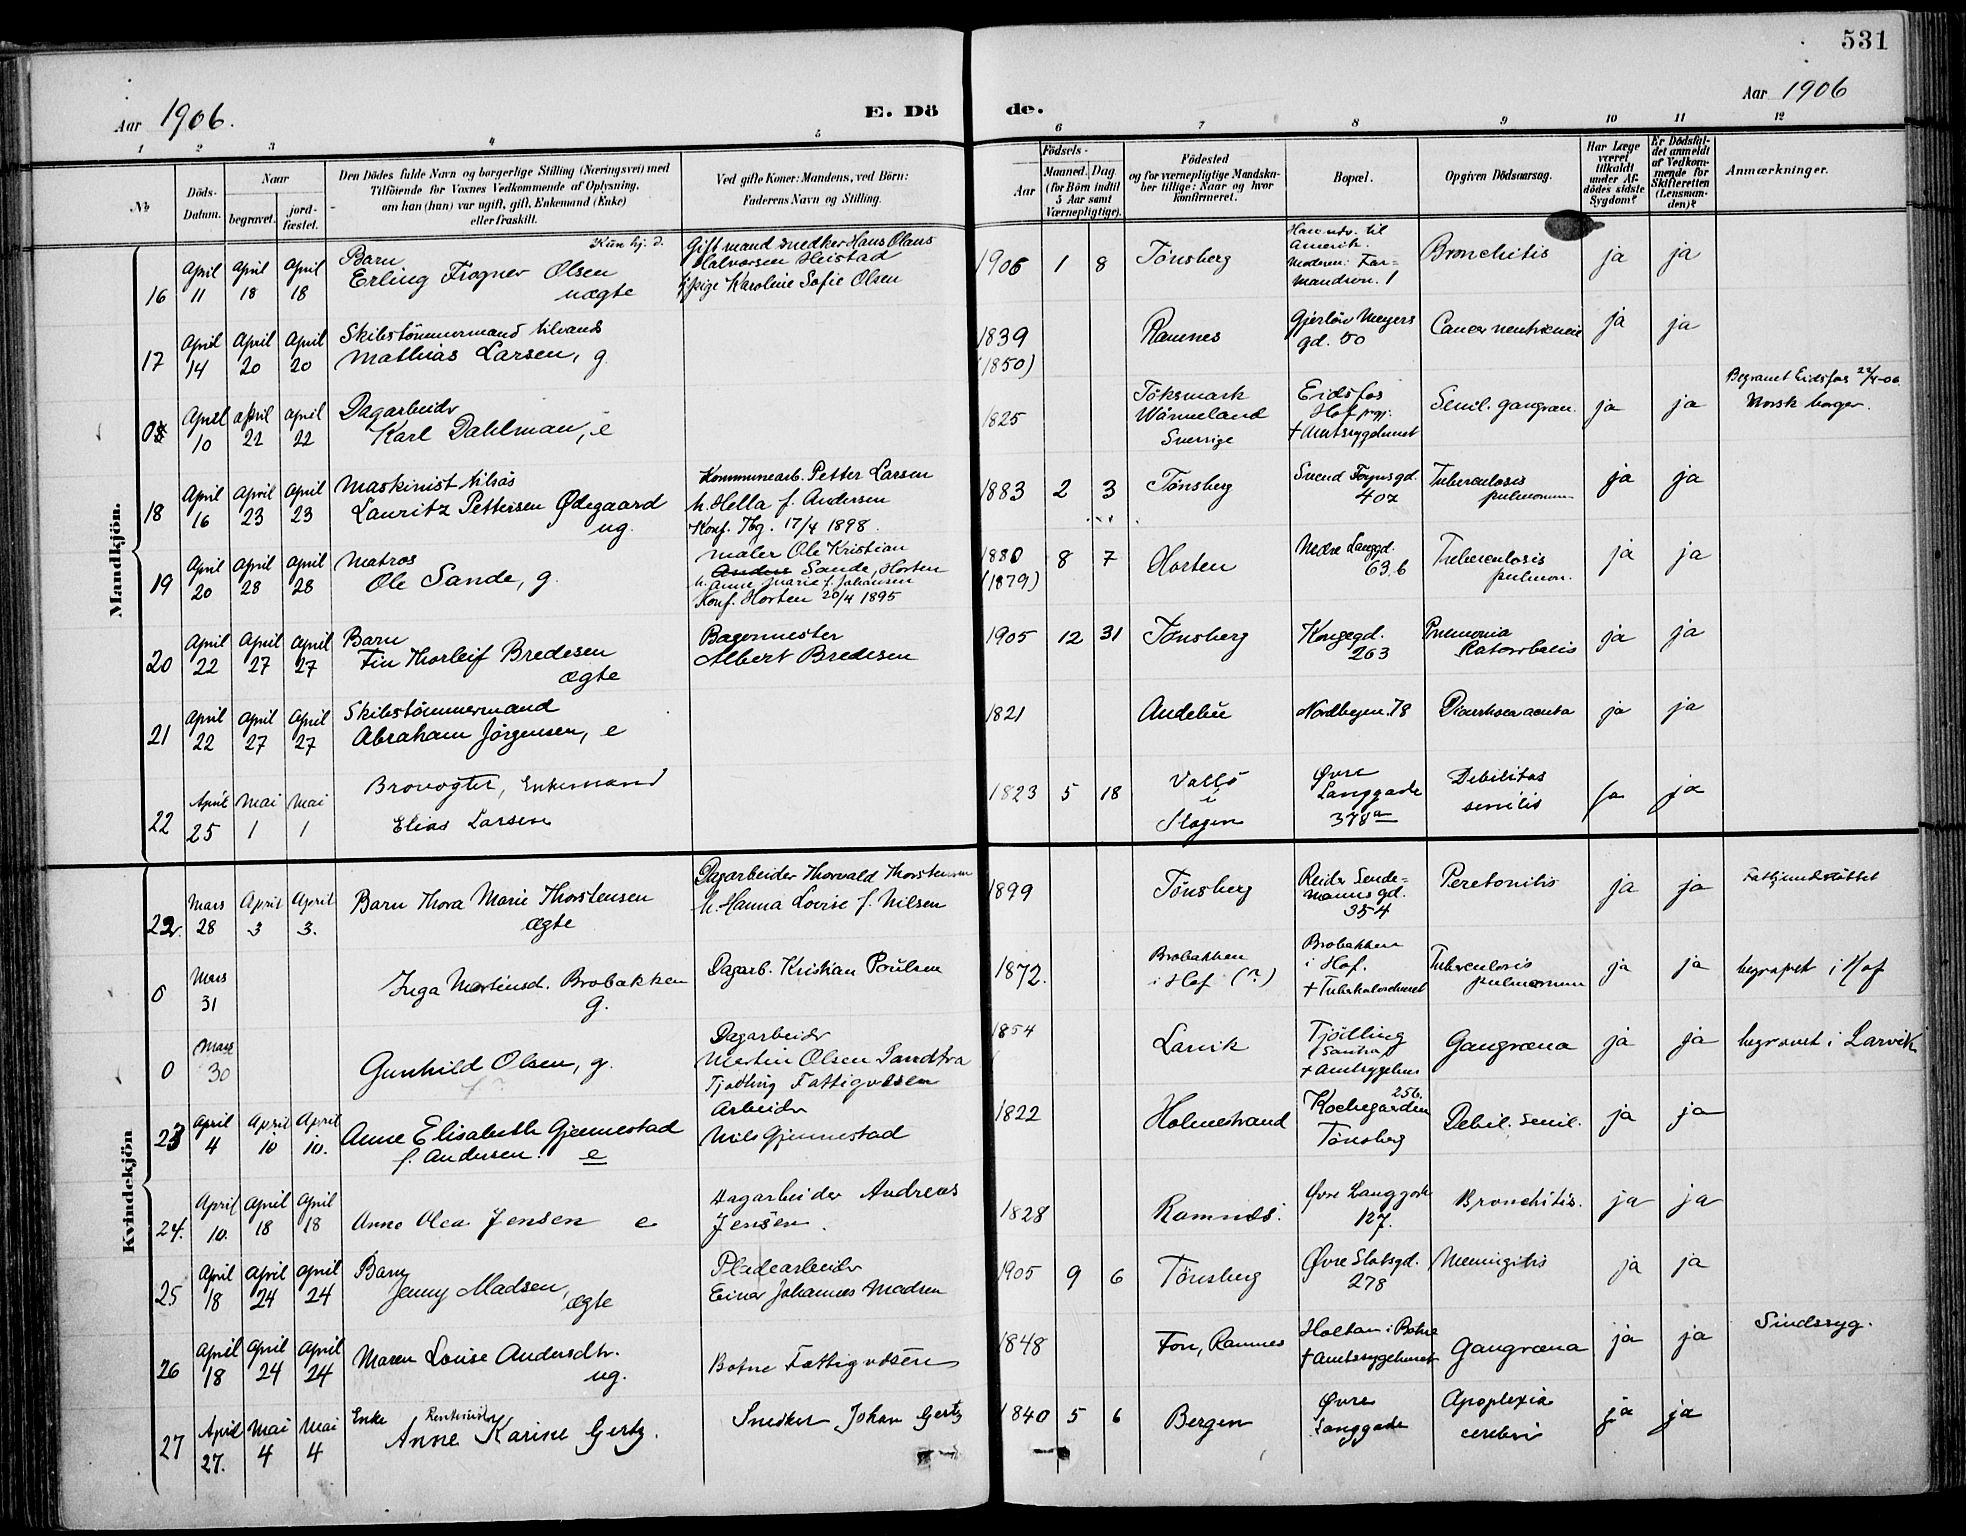 531
Aar 1906.
E. Dö de.
Aar 1906
1 2 3 4 5 6 7 8 9 10 11 12
No
Döds-Datum.
Naar
begravet.
jord-fæstet.
Den Dödes fulde Navn og borgerlige Stilling (Næringsvei) med
Tilföiende for Voxnes Vedkommende af Oplysning,
om han (hun) var ugift, gift, Enkemand (Enke)
eller fraskilt.
Ved gifte Koner: Mandens, ved Börn:
Faderens Navn og Stilling.
Födsels-
Aar
Maaned. Dag
(for Börn indtil
5 Aar samt
Værnepligtige).
Födested
og for værnepligtige Mandska-
ber tillige: Naar og hvor
konfirmeret.
Bopæl.
Opgiven Dödsaarsag.
Har Læge
været
tilkaldt
under Af-
dödes sidste
Sygdom?
Er Dödsfal-
det anmeldt
af Vedkom-
mende for
Skifteretten
(Lensman-
den)?
Anmærkninger.
Mandkjön.
16 April 11 April 18 April 18
Kun hj. d.
Barn
Erling Frogner Olsen
uægte
Gift mand snedker Hans Olaus
Halvorsen Heistad
pige Karoline Sofie Olsen
1906 1 8 Tönsberg
til
Amerik.
Moderen: Far-
mandsvn. 1
Bronchitis ja ja
17 April 14 April 20 April 20
Skibstömmermand tilvands
Mathias Larsen, g
1839
(1850)
Ramnes
Gjerlöw Meyers
gd. 50
Cancer ventriculi ja ja
0 April 10 April 22 April 22
Dagarbeidr
Karl Dahlman, e
1825
Töksmark
Wärmeland
Sverrige
Eidsfos
Hof
+ Amtssygehuset
Senil. gangræn. ja ja
Begravet Eidsfos 22/4-06
Norsk borger.
18 April 16 April 23 April 23
Maskinist tilsös
Lauritz Pettersen Ødegaard
ug.
Kommunearb. Petter Larsen
h. Hella f. Andersen
Konf. Tbg. 17/4 1898.
1883 2 3 Tönsberg
Svend Foynsgd.
40z
Tuberculosis
pulmonum ja ja
19 April 20 April 28 April 28
Matros
Ole Sande, g.
Maler Ole Kristian
Anders Sande, Horten
h. Anne Marie f. Johansen
Konf. Horten 20/4 1895
1880 8 7
(1879)
Horten
Nedre Langgd.
63.b
Tuberculosis
pulmon. ja ja
20 April 22 April 27 April 27
Barn
Fin Thorleif Bredesen
ægte
Bagermester
Albert Bredesen
1905 12 31 Tönsberg
Kongegd.
263
Pnemonia
Katarrhalis ja ja
21 April 22 April 27 April 27
Skibstömmermand
Abraham Jörgensen, e
1821 Andebu Nordbyen. 78 Diarrhoea acuta ja ja
22 April 25 Mai 1 Mai 1
Brovogter, Enkemand
Elias Larsen
1823 5 18
Vallö
i
Slagen
Øvre
Langgade
378a
Debilitas
senilis ja ja
Kvindekjön
22. Mars 28 April 3 April 3.
Barn Thora Marie Thorstensen
ægte
Dagarbeider Thorvald Thorstensen
h. Hanna Lovise f. Nilsen
1899 Tönsberg
Reidr Sende-
manns gd.
354
Peretonitis ja ja
Fattigunderstöttet
0 Mars 31
Inga Martinsd. Brobakken
g.
Dagarb. Kristian Poulsen
1872.
Brobakken
i Hof (?)
Brobakken
i Hof.
+ Tuberkulosehuset
Tuberculosis
pulmonum ja ja
begravet i Hof
0 Mars 30
Gunhild Olsen, g.
f. ?
Dagarbeidr
Martin Olsen Sandtra
Tjödling Fattigvæsen
1854 Larvik
Tjödling
(Sandtra)
+ Amtssygehus
Gangræna ja ja
begravet i Larvik
23 April 4 April 10 April 10.
Anne Elisabeth Gjennestad
f. Andersen. e
Arbeidr
Nils Gjennestad
1822 Holmestrand
256.
Kochegarden
Tönsberg
Debil. senil. ja ja
24. April 10. April 18 April 18
Anne Olea Jensen e
Dagarbeider Andreas
Jensen.
1828 Ramnes.
Øvre Langgade
127.
Bronchitis. ja ja
25 April 18 April 24 April 24
Barn
Jenny Madsen,
ægte
Pladearbeidr
Einar Johannes Madsen
1905 9 6 Tönsberg
Øvre Slotsgd.
278
Meningitis ja ja
26 April 18 April 24 April 24
Maren Louise Andersdtr.
ug.
Botne Fattigvæsen
1848 Fon, Ramnes
Holtan i Botne
+ Amtssygehuset
Gangræna ja ja
Sindssyg.
27 April 27. Mai 4 Mai 4
Enke
Anne Karine Gertz.
Snedker Johan Gertz
1840 5 6 Bergen
Øvre
Langgade
Apoplexia
cerebri ja ja